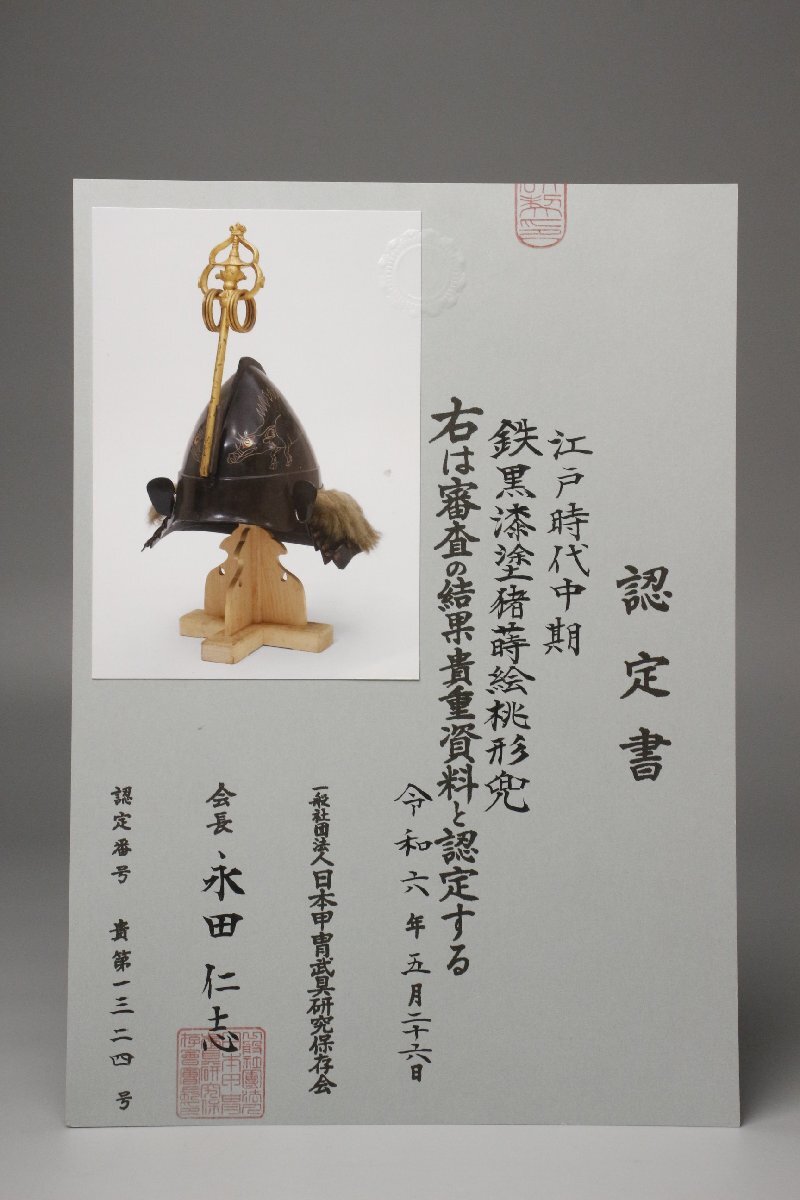 認定書
江戸時代中期
鉄黒漆塗猪蒔絵桃形兜
右は審査の結果貴重資料と認定する
令和六年五月二十六日
一般社団法人日本甲冑武具研究保存会
会長 永田仁志
認定番号 貴第一三二四号